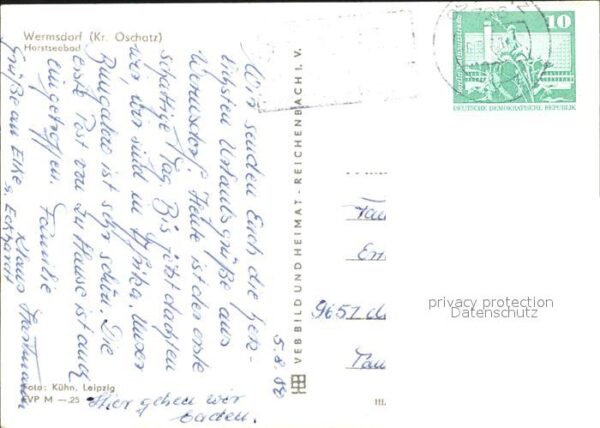 Wermsdorf (Kr. Oschatz)
Horstseebad
Wir senden Euch die herz-
lichsten Urlaubsgrüße aus
Wermsdorf. Heute ist der erste
schattige Tag. Bis jetzt dachten
wir, wir sind in Afrika. Unser
Bungalow ist sehr schön. Die
erste Post von zu Hause ist auch
eingetroffen. Familie
Klaus Hartmann
Grüße an Elke
u. Eckhardt
Hier gehen wir
baden.
5.8.
Foto: Kühn, Leipzig
EVP M –.25
VEB BILD UND HEIMAT · REICHENBACH I. V.
III.
10
DEUTSCHE DEMOKRATISCHE REPUBLIK
9657
privacy protection
Datenschutz